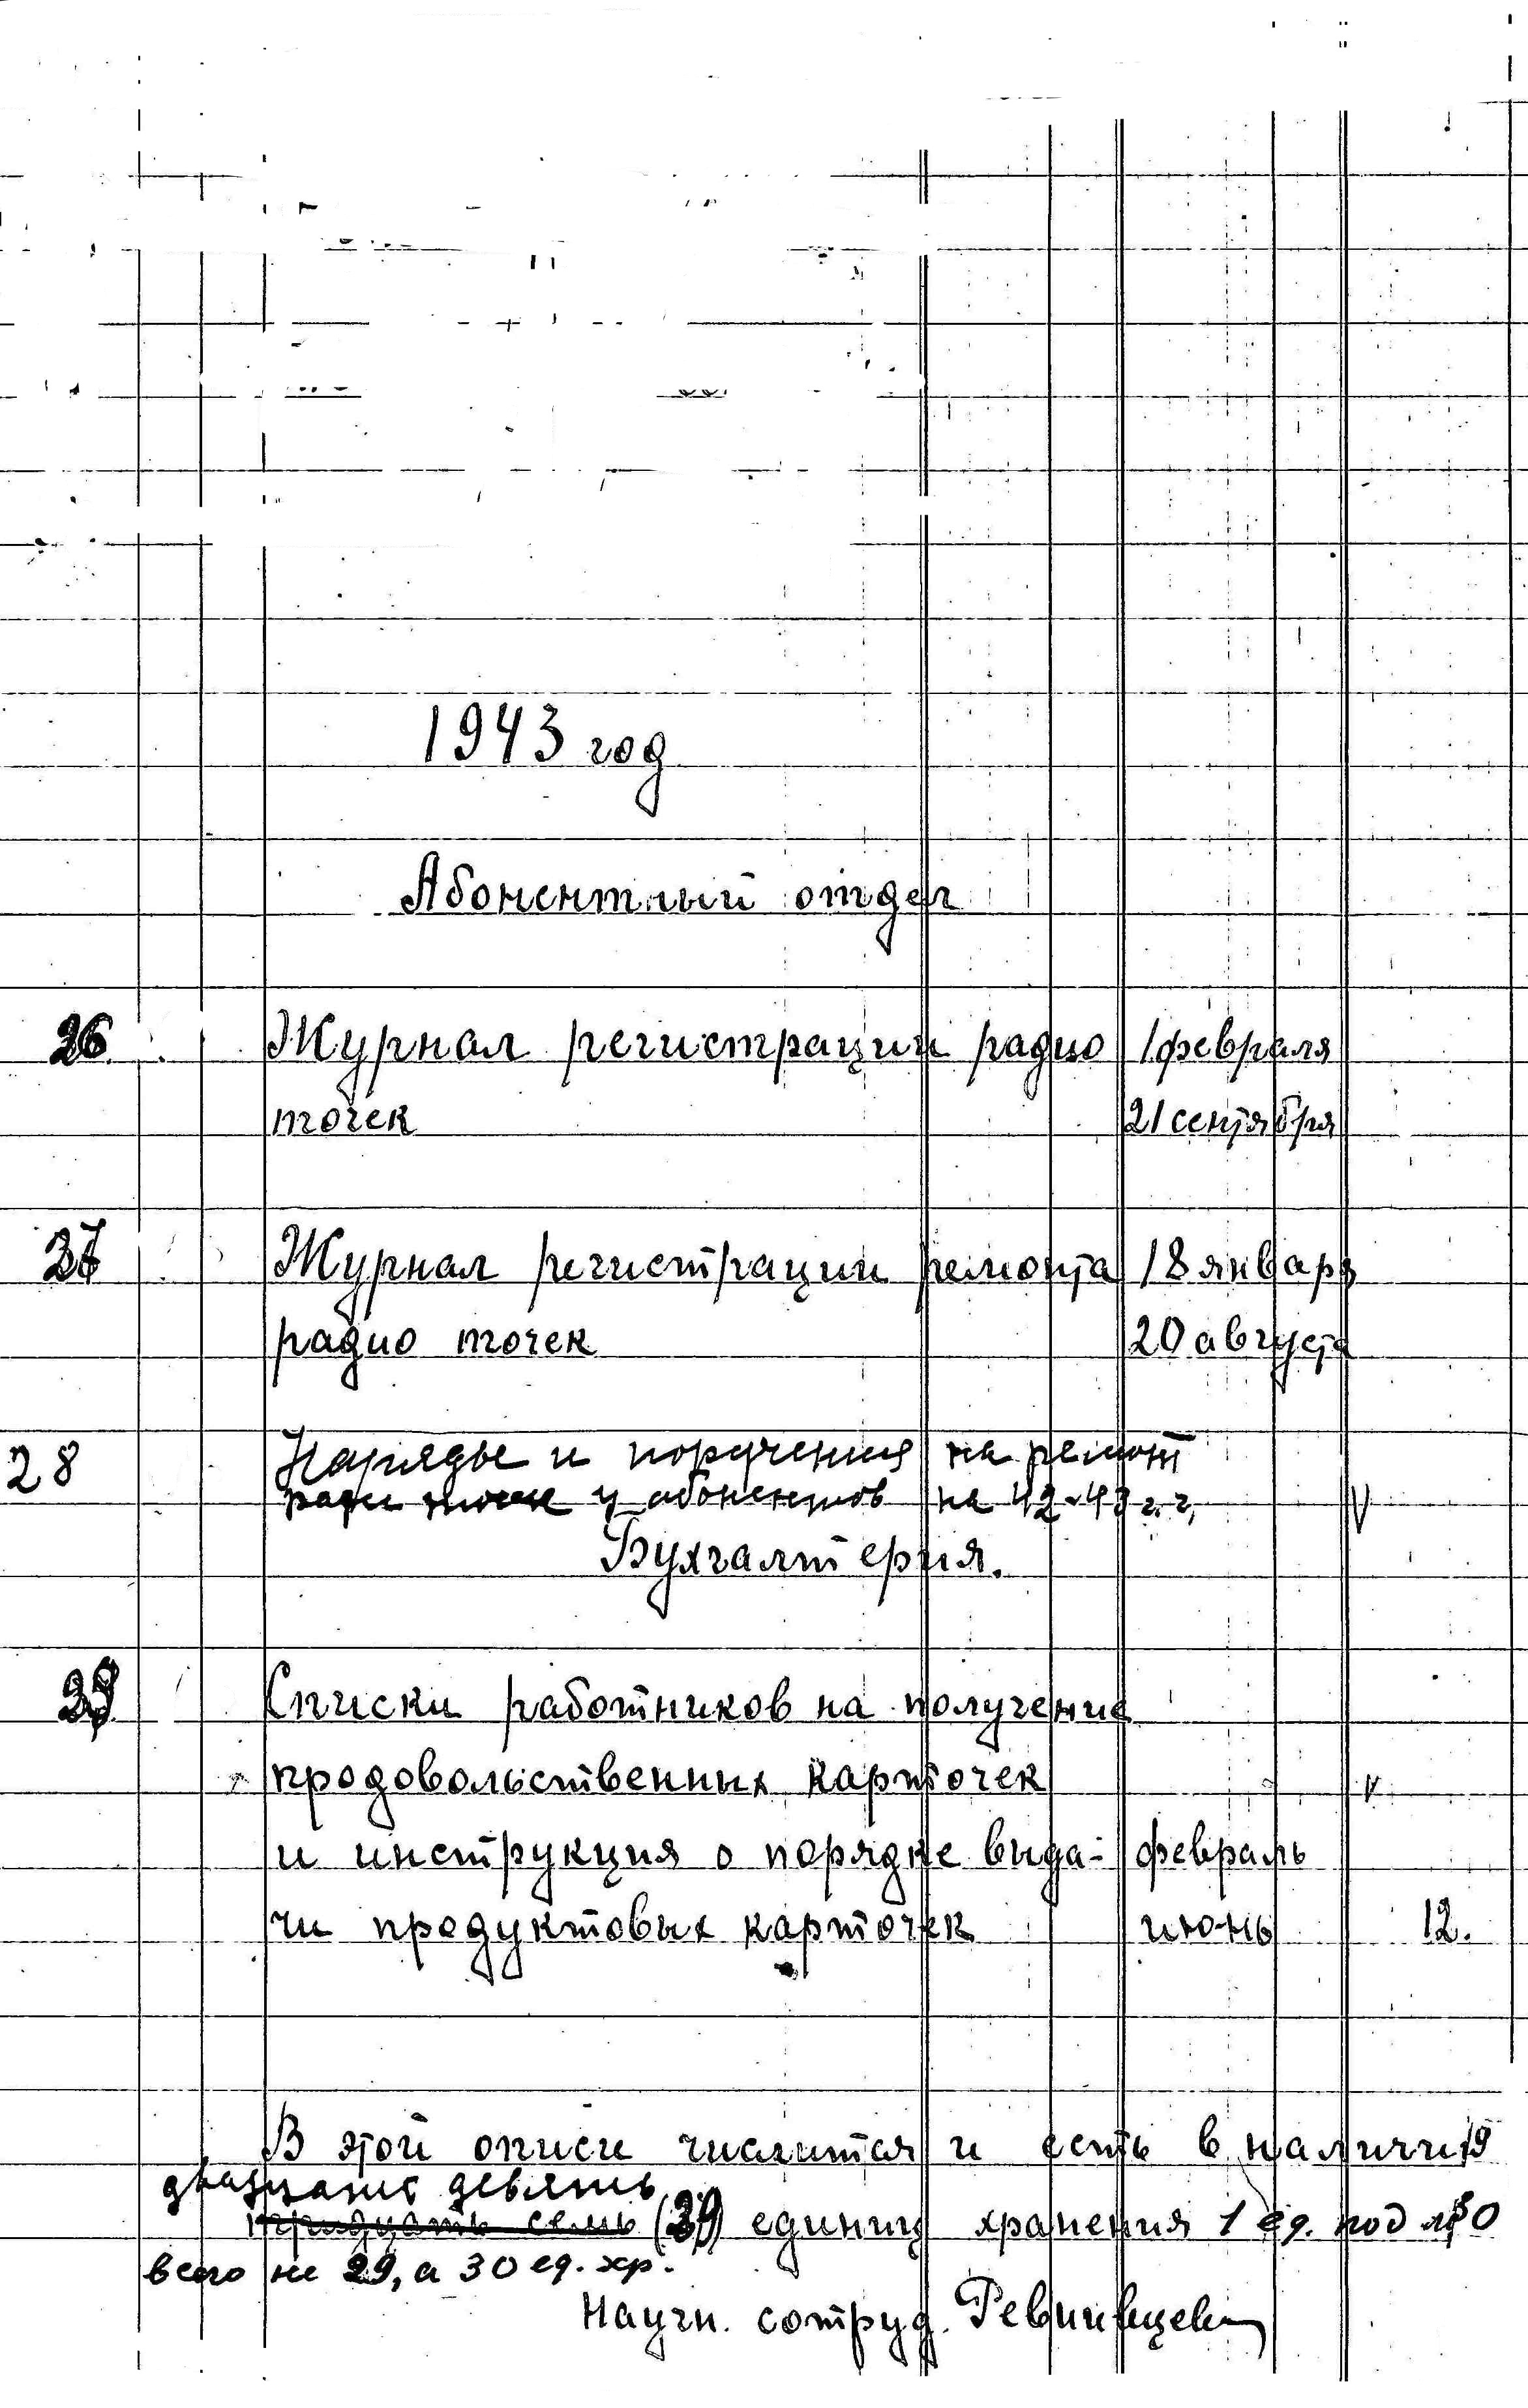 1943 год
Абонентный отдел
26 Журнал регистрации радио 1 февраля
точек 21 сентября
27 Журнал регистрации ремонта 18 января
радио точек 20 августа
28 Наряды и поручения на ремонт
радио точек у абонентов на 42-43 г.г. V
Бухгалтерия.
29 Списки работников на получение
продовольственных карточек V
и инструкция о порядке выда- февраль
чи продуктовых карточек июнь 12.
В этой описи числится и есть в наличии
двадцать девять
тридцать семь (29) единиц хранения 1 ед. под
всего не 29, а 30 ед. хр.
Научн. сотруд.